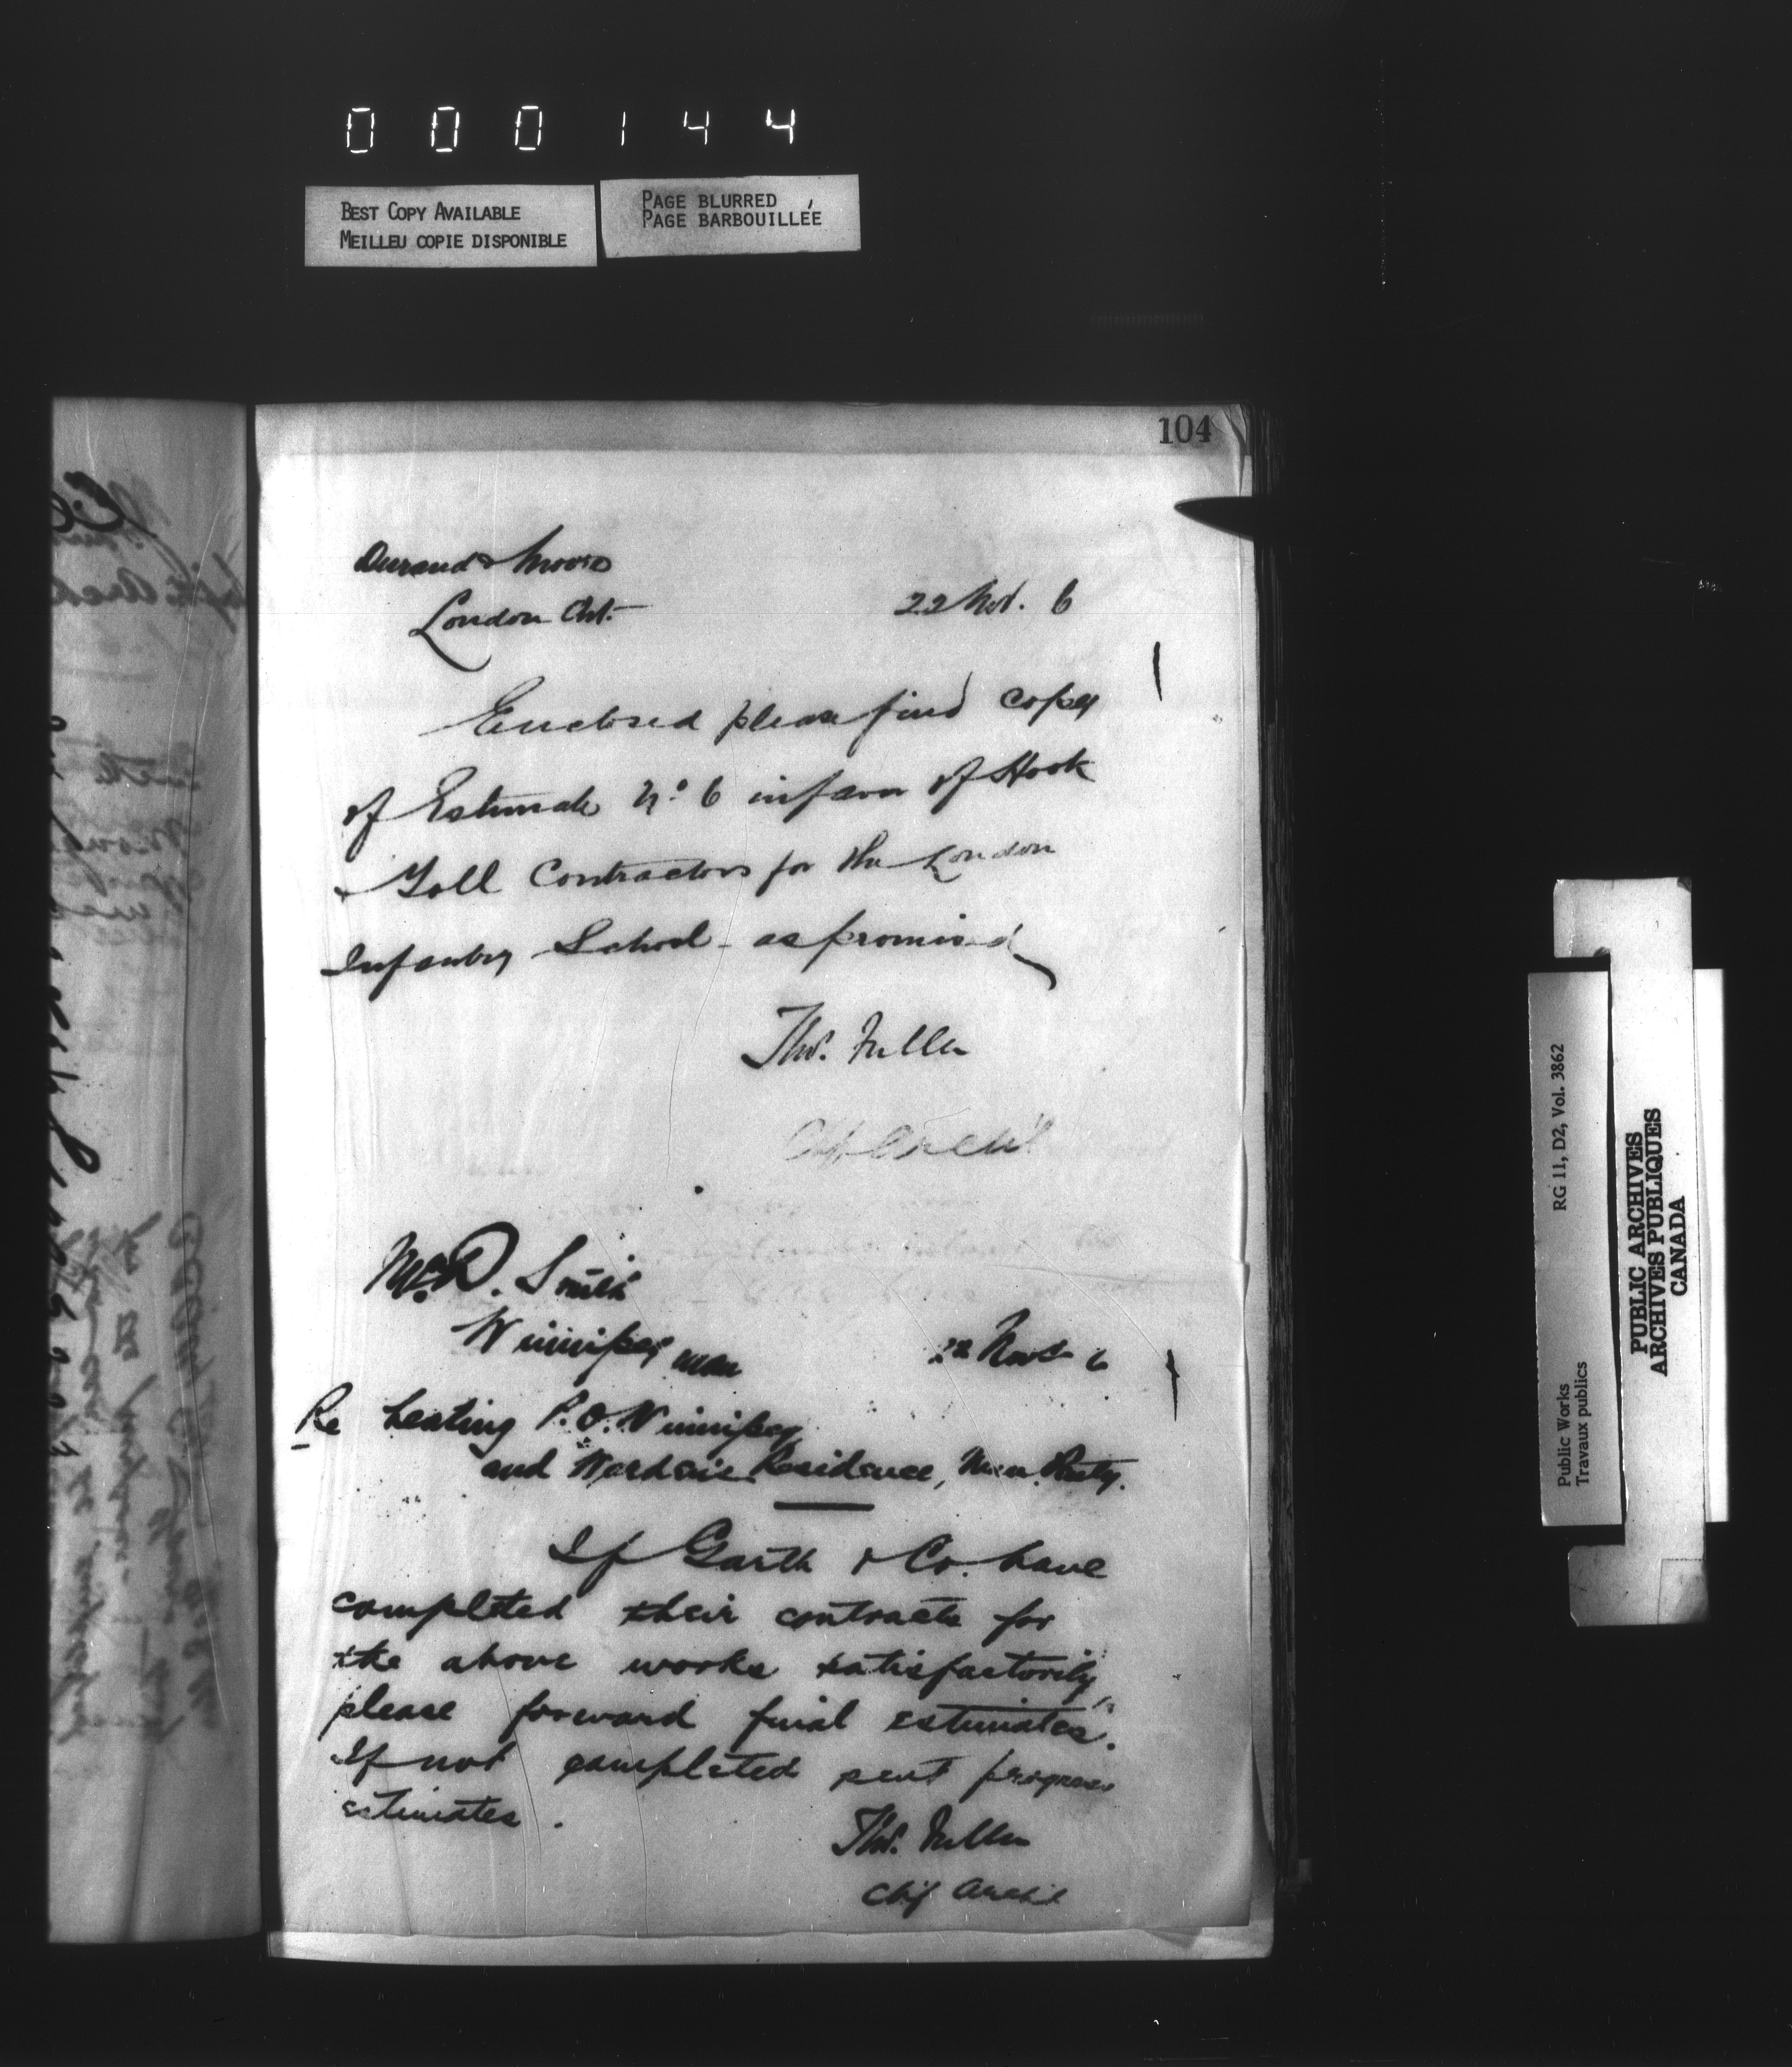 000144
BEST COPY AVAILABLE
MEILLEU COPIE DISPONIBLE
PAGE BLURRED
PAGE BARBOUILLÉE
104
Durand & Moore
London Ont.
22 Nov. 6
Enclosed please find copy
of Estimate No. 6 in favor of Hook
& Toll Contractors for the London
Infantry School - as promised
Thos. Fuller
Chf Archt
D. Smith
Winnipeg Man
22 Nov 6
Re heating P.O. Winnipeg
and Warden's Residence, Man. Penty.
If Garth & Co. have
completed their contracts for
the above works satisfactorily,
please forward final estimates.
If not completed sent progress
estimates.
Thos. Fuller
Chf Archt
RG 11, D2, Vol. 3862
Public Works
Travaux publics
PUBLIC ARCHIVES
ARCHIVES PUBLIQUES
CANADA